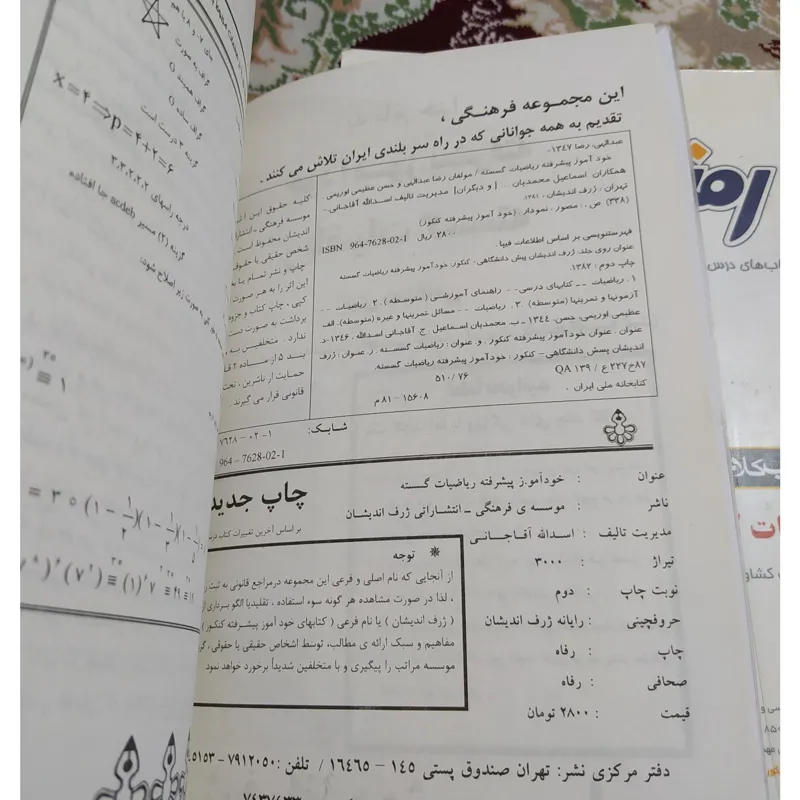 این مجموعه فرهنگی ،
تقدیم به همه جوانانی که در راه سر بلندی ایران تلاش می کنند .
عبدالهی، رضا ۱۳٤۷-
خود آموز پیشرفته ریاضیات گسسته / مولفان رضا عبدالهی و حسن عظیمی اوریمی .
همکاران اسماعیل محمدیان ... [ و دیگران] مدیریت تالیف اسدالله آقاجانی.-
تهران . ژرف اندیشان . ۱۳۸۱.
(۳۳۸) ص . . مصور . نمودار. (خود آموز پیشرفته کنکور)
ISBN 964-7628-02-1 ۲۸۰۰ ریال
فهرستنویسی بر اساس اطلاعات فیپا .
عنوان روی جلد. ژرف اندیشان پیش دانشگاهی . کنکور. خودآموز پیشرفته ریاضیات گسسته
چاپ دوم : ۱۳۸۲.
۱ . ریاضیات -- کتابهای درسی-- راهنمای آموزشی ( متوسطه ) . ۲ . ریاضیات --
آزمونها و تمرینها (متوسطه) . ۳ . ریاضیات -- مسائل تمرینها و غیره (متوسطه). الف
عظیمی اوریمی، حسن. ۱۳٤٤ - ب. محمدیان اسماعیل . ج. آقاجانی اسدالله . ۱۳٤۶-د.
عنوان . عنوان خودآموز پیشرفته کنکور . و عنوان : ریاضیات گسسته . ر. عنوان : ژرف
اندیشان پیش دانشگاهی - کنکور : خودآموز پیشرفته ریاضیات گسسته.
QA ۱۳۹ / ع ۲۲۷خ۸۷
۵۱۰/ ۷۶
کتابخانه ملی ایران .
۸۱ - ۱۵۶۰۸ م
کلیه حقوق این اثر
موسسه فرهنگی - انتشار
اندیشان محفوظ است
شخص حقیقی یا حقوقی
چاپ و نشر تمام یا
این اثر را به هر صورت
کپی ، چاپ کتاب و جزوه
برداشت به صورت دست
ندارد . متخلفین به
بند ۵ از ماده ۲
حمایت از ناشرین ، تحت
قانونی قرار می گیرند .
شابک: ۱ - ۰۲ - ۷۶۲۸
964 - 7628-02-1
عنوان : خودآموز پیشرفته ریاضیات گسته
ناشر : موسسه ی فرهنگی - انتشاراتی ژرف اندیشان
مدیریت تالیف : اسدالله آقاجانی
تیراژ : ۳۰۰۰
نوبت چاپ : دوم
حروفچینی : رایانه ژرف اندیشان
چاپ : رفاه
صحافی : رفاه
قیمت : ۲۸۰۰ تومان
چاپ جدید
بر اساس آخرین تغییرات کتاب
* توجه
از آنجایی که نام اصلی و فرعی این مجموعه درمراجع قانونی به ثبت
، لذا در صورت مشاهده هر گونه سوء استفاده ، تقلیدیا الگو برداری از
( ژرف اندیشان ) یا نام فرعی ( کتابهای خود آموز پیشرفته کنکور )
مفاهیم و سبک ارائه ی مطالب، توسط اشخاص حقیقی یا حقوقی ،
موسسه مراتب را پیگیری و با متخلفین شدیداً برخورد خواهد نمود.
دفتر مرکزی نشر: تهران صندوق پستی ۱۴۵ - ۱۶۴۶۵ / تلفن :۷۹۱۲۰۵۰ -
گراف به صورت
گراف همبند
گراف ساده
گزینه ۳ درست است
x = ۴ ⇒ p = ۴ + ۲ = ۶
درجه راسهای ۳،۳،۲،۲،۲
گزینه (۲) مسیر acdeb جا افتاده
به صورت زیر اصلاح شود: